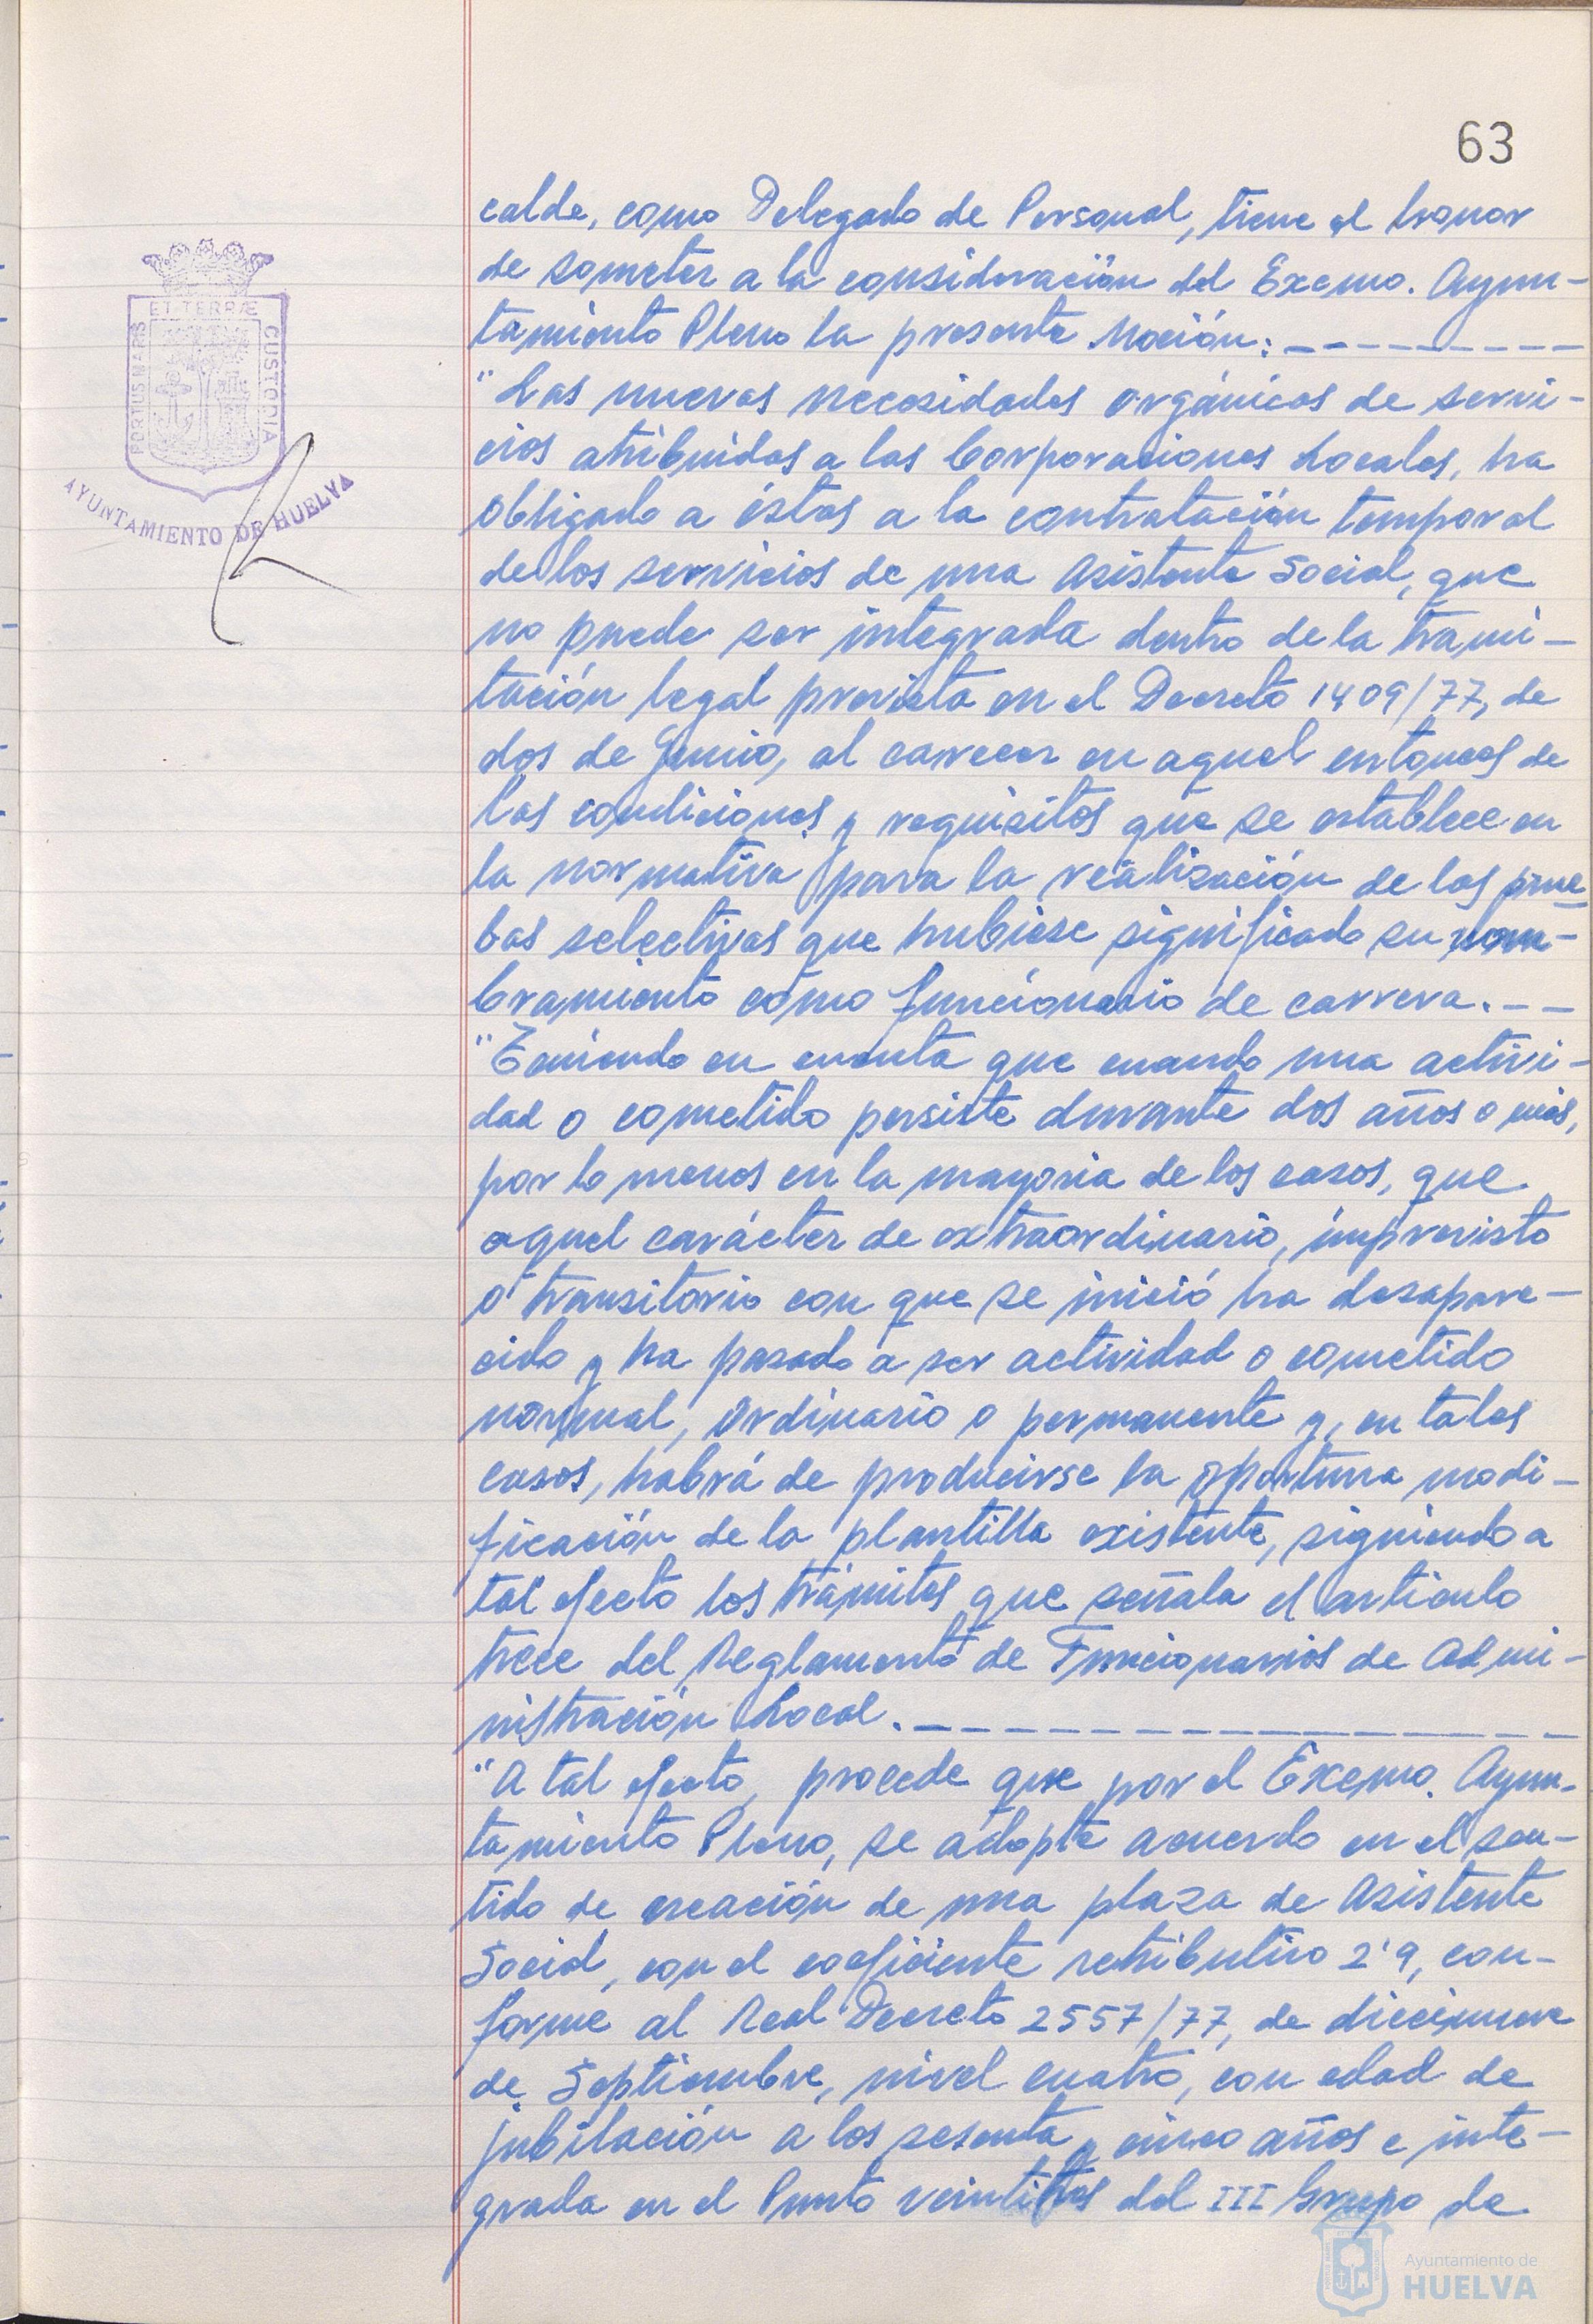 63
calde, como Delegado de Personal, tiene el honor
de someter a la consideración del Excmo. Ayun-
tamiento Pleno la presente Moción:
"Las nuevas necesidades orgánicas de servi-
cios atribuidas a las Corporaciones Locales, ha
obligado a éstas a la contratación temporal
de los servicios de una Asistente Social, que
no puede ser integrada dentro de la trami-
tación legal prevista en el Decreto 1409/77, de
dos de Junio, al carecer en aquel entonces de
las condiciones y requisitos que se establece en
la normativa para la realización de las prue
bas selectivas que hubiese significado su nom-
bramiento como funcionario de carrera.
"Teniendo en cuenta que cuando una activi-
dad o cometido persiste durante dos años o más,
por lo menos en la mayoria de los casos, que
aquel carácter de extraordinario, imprevisto
o transitorio con que se inició ha desapare-
cido y ha pasado a ser actividad o cometido
normal, ordinario o permanente y, en tales
casos, habrá de producirse la oportuna modi-
ficación de la plantilla existente, siguiendo a
tal efecto los trámites que señala el articulo
trece del Reglamento de Funcionarios de Admi-
nistración Local.
"A tal efecto, procede que por el Excmo. Ayun-
tamiento Pleno, se adopte acuerdo en el sen-
tido de creación de una plaza de Asistente
Social, con el coeficiente retributivo 2'9, con-
forme al Real Decreto 2557/77, de diecinueve
de Septiembre, nivel cuatro, con edad de
jubilación a los sesenta y cinco años e inte-
grada en el Punto veintitres del III Grupo de
PORTUS MARIS
ET TERRÆ
CUSTODIA
AYUNTAMIENTO DE HUELVA
Ayuntamiento de
HUELVA